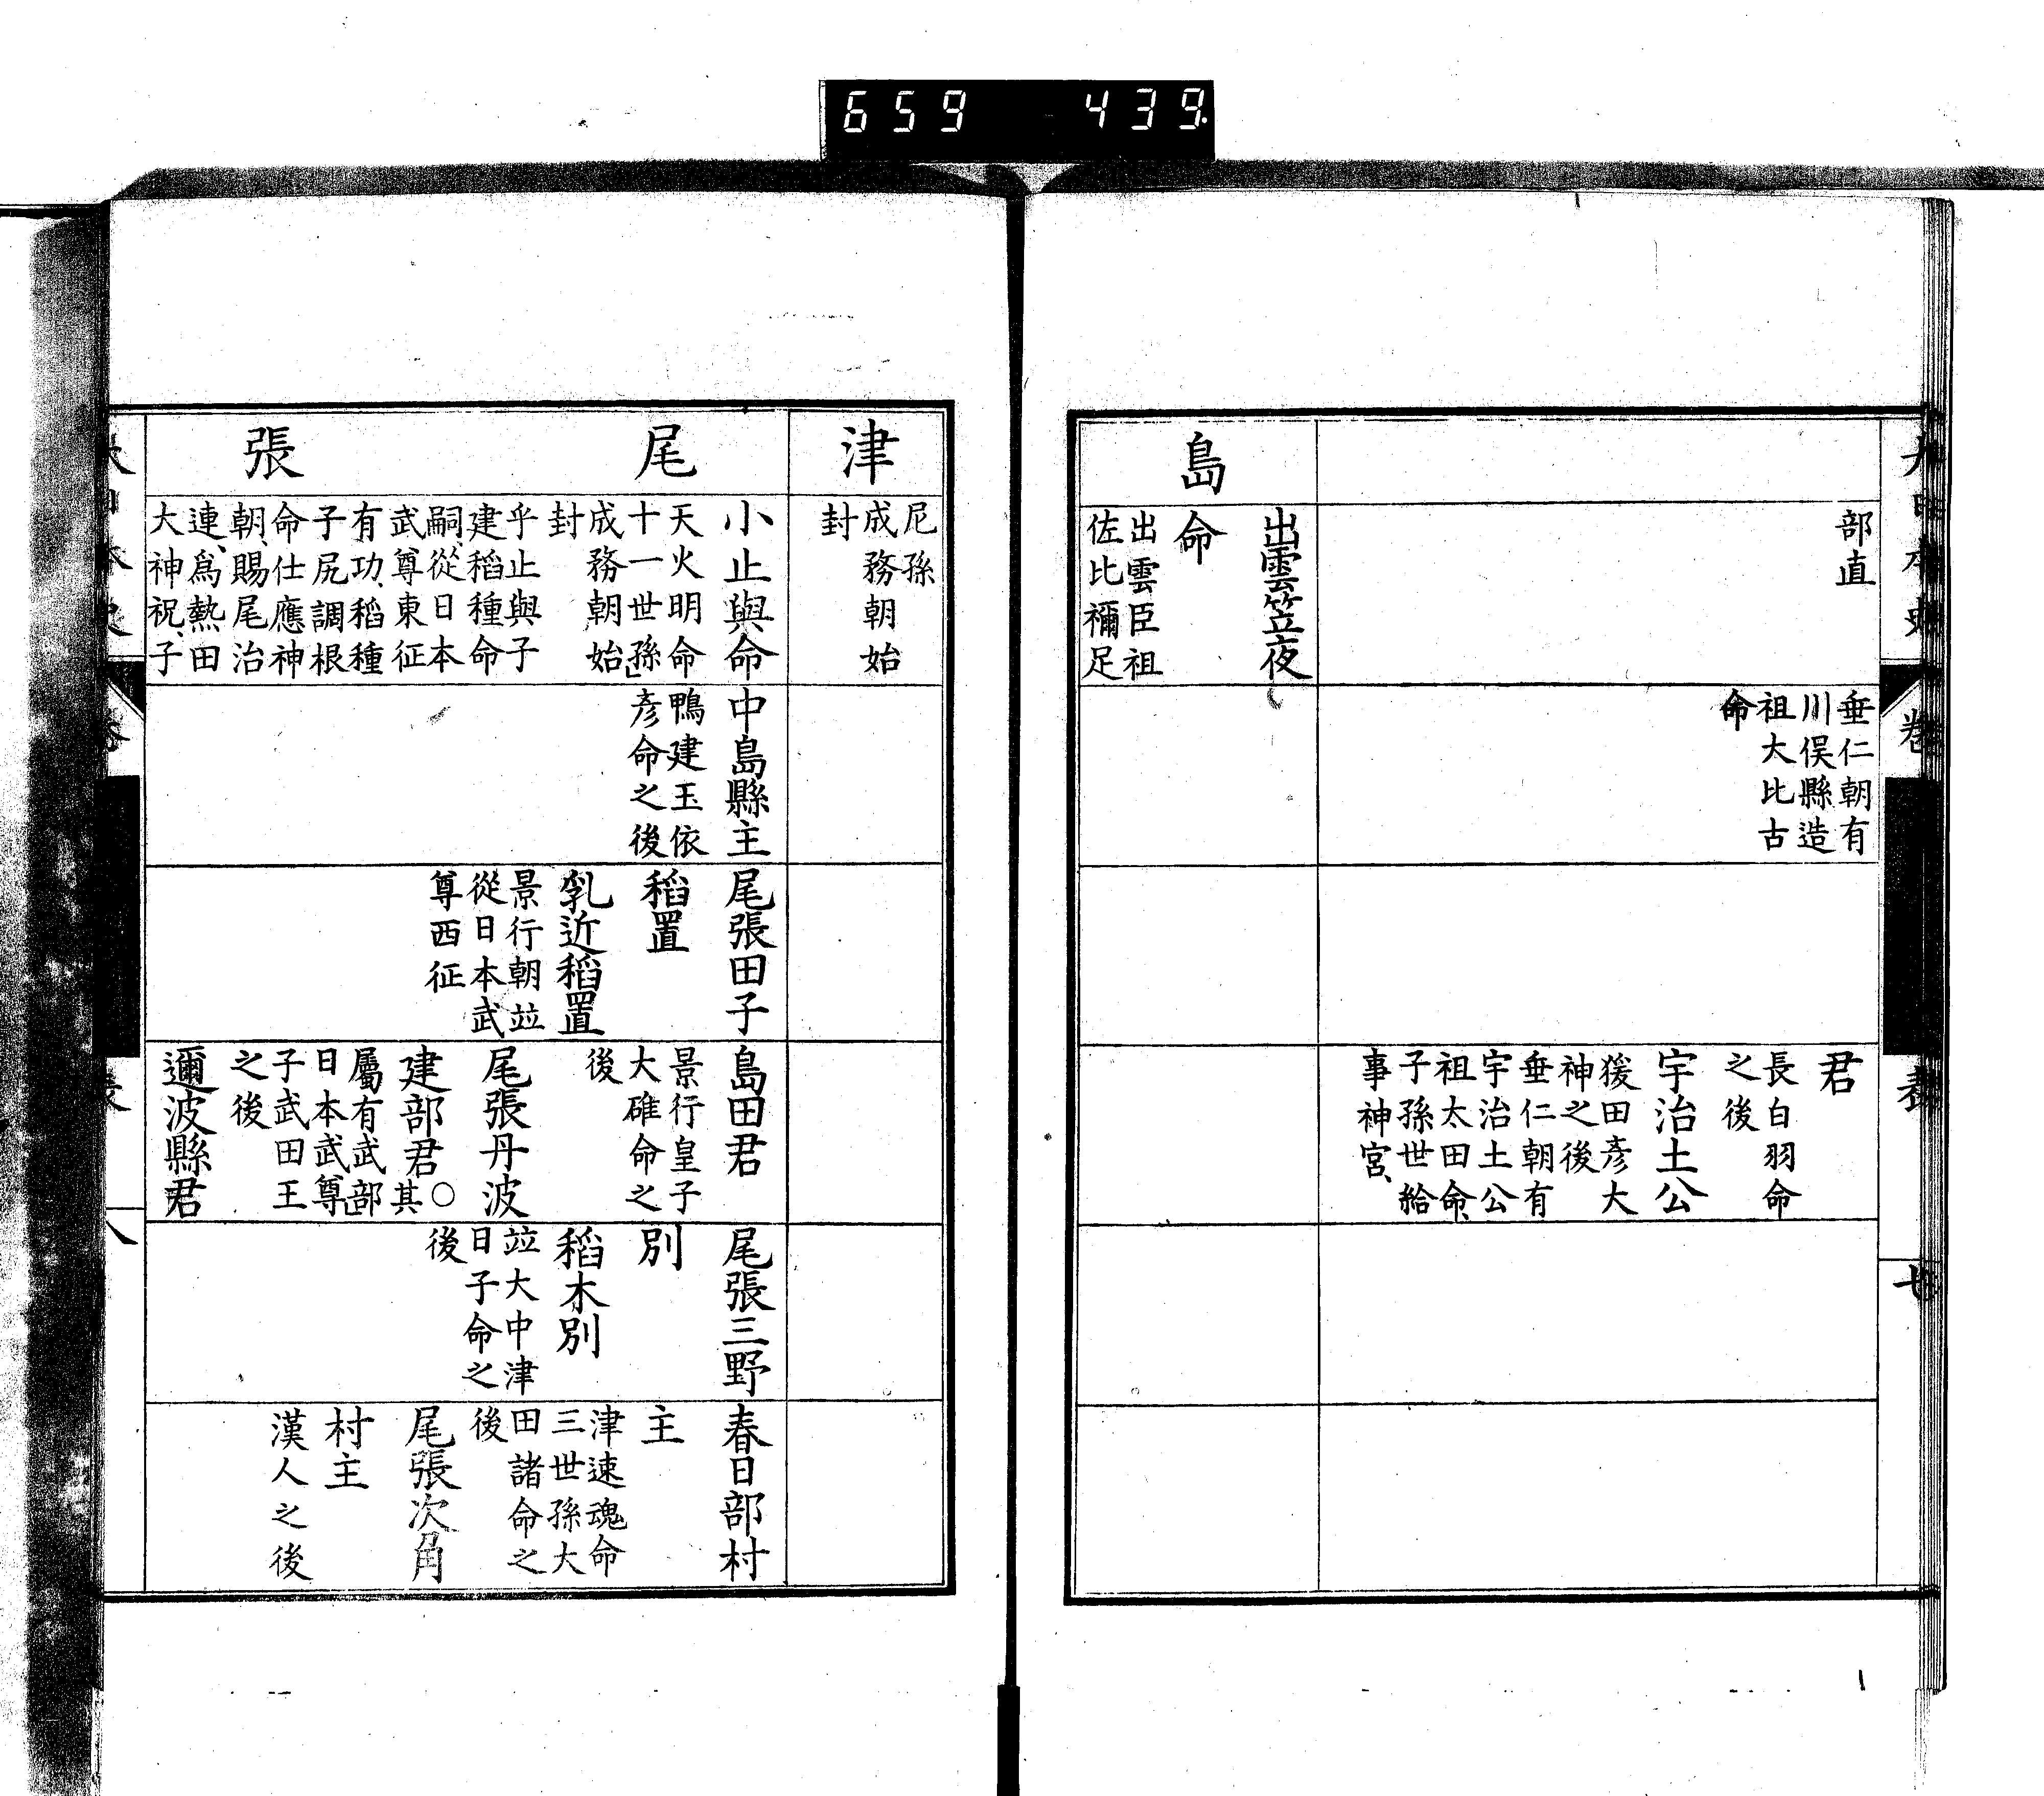 659 439
部直
垂仁朝有
川俣縣造
祖大比古
命
君
長白羽命
之後
宇治土公
猨田彦大
神之後
垂仁朝有
宇治土公
祖太田命、
子孫世給
事神宮、
七
島
出雲笠夜
命
出雲臣祖
佐比禰足
津
尼孫
成務朝始
封
尾張
小止與命
天火明命
十一世孫」
成務朝始
封
乎止與子
建稻種命
嗣、從日本
武尊東征
有功、稻種
子尻調根
命仕應神
朝、賜尾治
連、爲熱田
大神祝、子
中島縣主
鴨建玉依
彦命之後
尾張田子
稻置
乳近稻置
景行朝竝
從日本武
尊西征
島田君
景行皇子
大碓命之
後
尾張丹波
建部君○其
屬有武部
日本武尊
子武田王
之後
邇波縣君
尾張三野
別
稻木別
竝大中津
日子命之
後
春日部村
主
津速魂命
三世孫大
田諸命之
後
尾張次角
村主
漢人之後
八